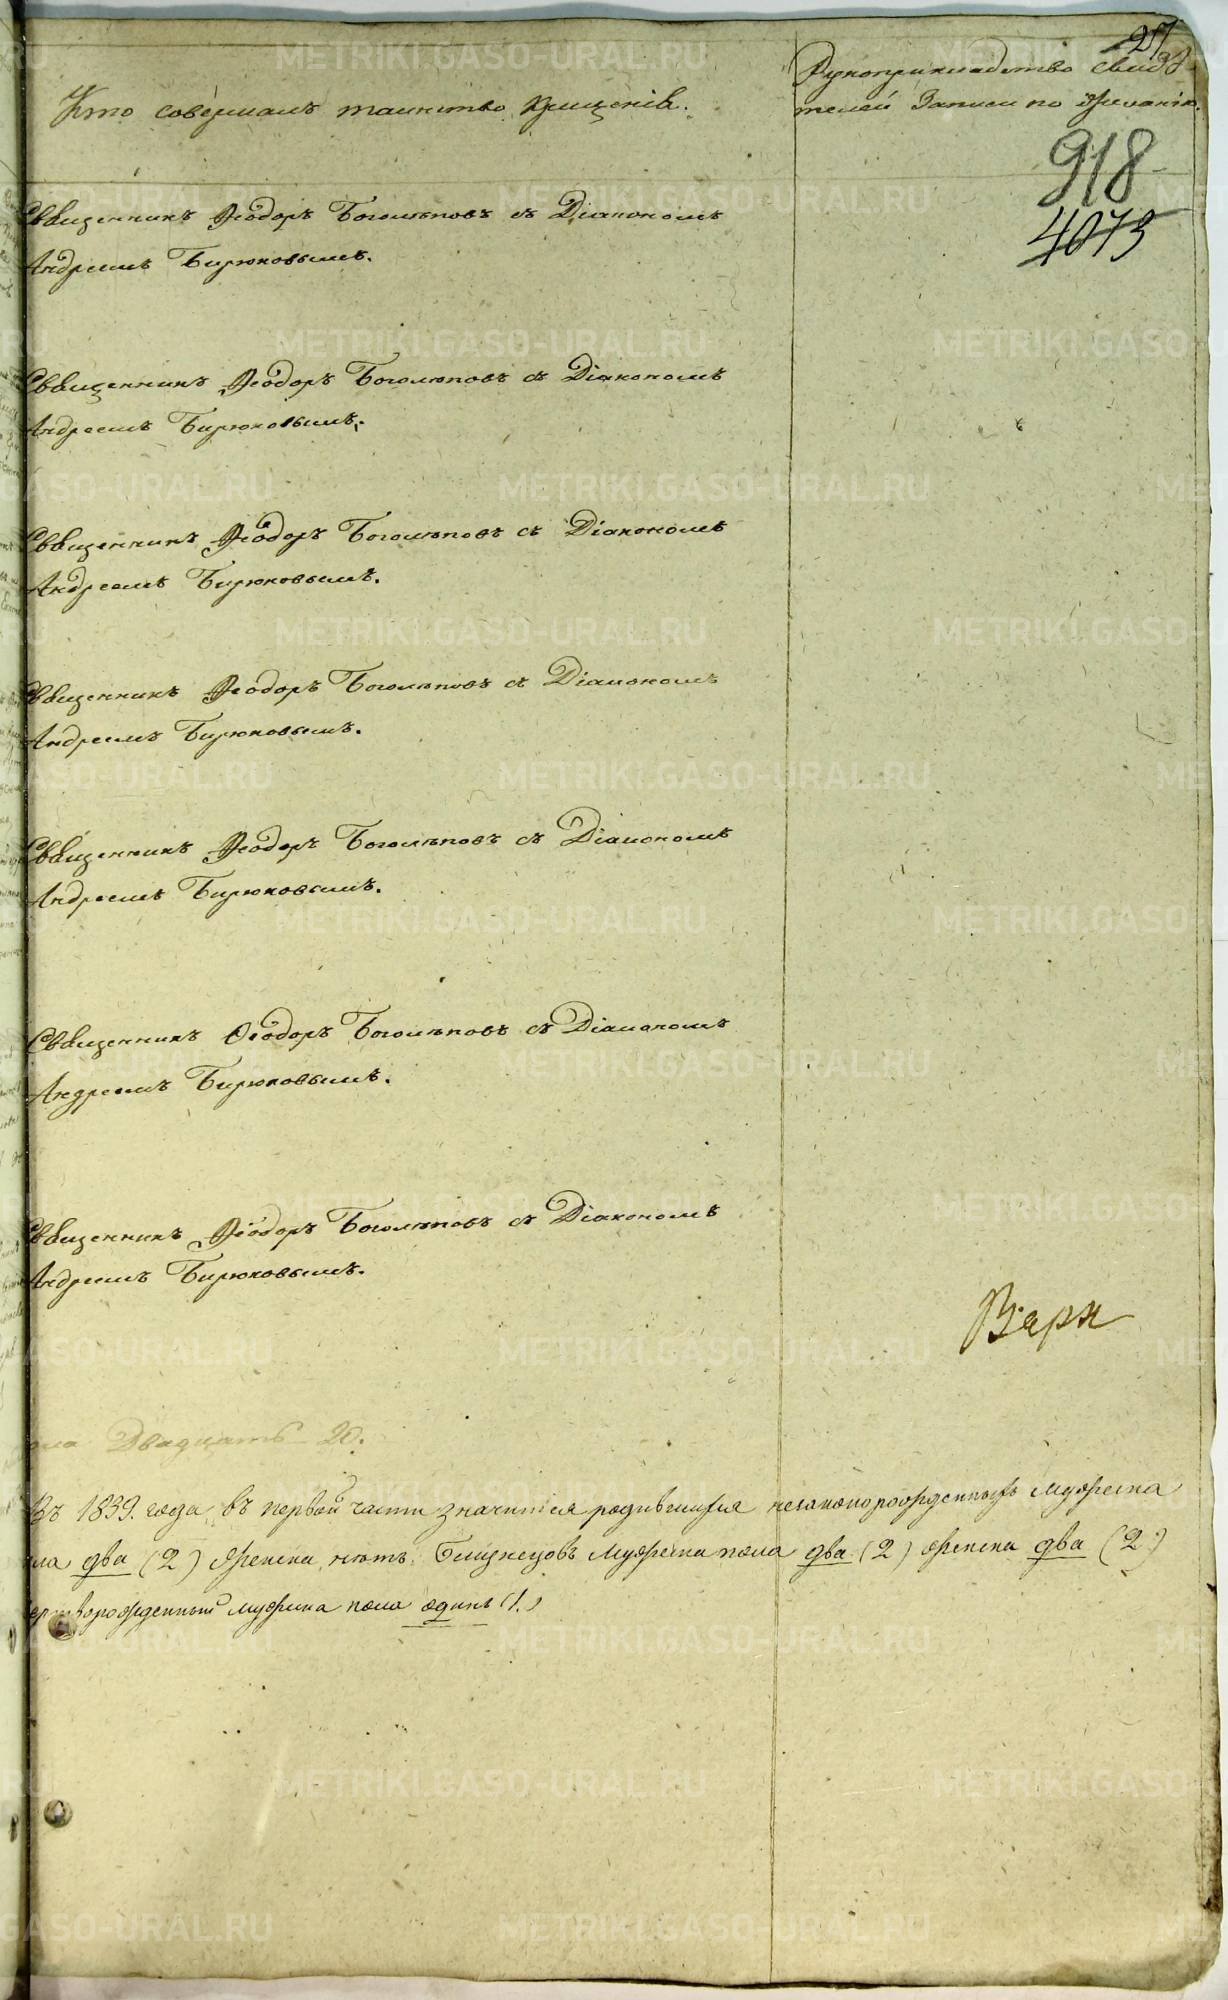 27
Кто совершалъ таинство крещенія.
Рукоприкладство свидѣ-
телей Записи по желанію.
918
4073
Священникъ Ѳеодоръ Боголѣповъ съ Діакономъ
Андреемъ Бирюковымъ.
Священникъ Ѳеодоръ Боголѣповъ съ Діакономъ
Андреемъ Бирюковымъ.
Священникъ Ѳеодоръ Боголѣповъ съ Діакономъ
Андреемъ Бирюковымъ.
Священникъ Ѳеодоръ Боголѣповъ съ Діакономъ
Андреемъ Бирюковымъ.
Священникъ Ѳеодоръ Боголѣповъ съ Діакономъ
Андреемъ Бирюковымъ.
Священникъ Ѳеодоръ Боголѣповъ съ Діакономъ
Андреемъ Бирюковымъ.
Священникъ Ѳеодоръ Боголѣповъ съ Діакономъ
Андреемъ Бирюковымъ.
Двадцать 20.
Въ 1839. года въ первой части значится родившихся незаконорожденныхъ мужеска
два (2) женска нѣтъ. Близнецовъ мужеска пола два (2) женска два (2.)
мужеска пола одинъ (1.)
METRIKI.GASO-URAL.RU